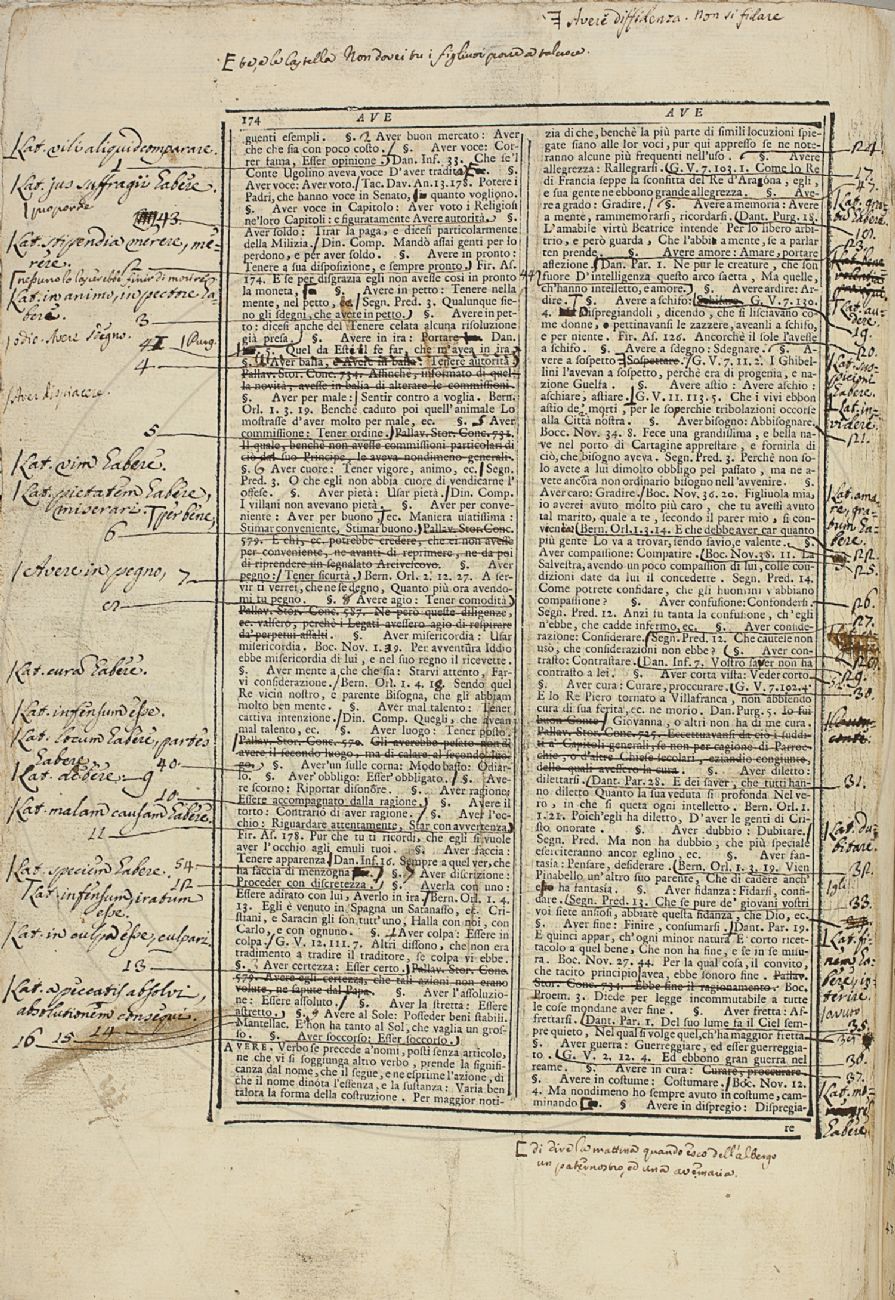 Avere diffidenza. Non si fidare
174
AVE
AVE
guenti esempli. §. Aver buon mercato: Aver
che che sia con poco costo. §. Aver voce: Cor-
rer fama, Esser opinione. Dan. Inf. 33. Che se'l
Conte Ugolino aveva voce D'aver tradita
Aver voce: Aver voto. Tac. Dav. An. 13. 178. Potere i
Padri, che hanno voce in Senato, quanto vogliono.
§. Aver voce in Capitolo: Aver voto i Religiosi
ne'loro Capitoli: e figuratamente Avere autorità. §.
Aver soldo: Tirar la paga, e dicesi particolarmente
della Milizia. Din. Comp. Mandò assai genti per lo
perdono, e per aver soldo. §. Avere in pronto:
Tenere a sua disposizione, e sempre pronto. Fir. As.
174. E se per disgrazia egli non avesse così in pronto
la moneta, §. Avere in petto: Tenere nella
mente, nel petto, Segn. Pred. 3. Qualunque sie-
no gli sdegni, che avete in petto. §. Avere in pet-
to: dicesi anche del Tenere celata alcuna risoluzione
già presa. §. Avere in ira: Portare Dan.
Quel da Esti il fe far, che m'avea in ira
§. Aver balìa, e Avere in balìa: Tenere autorità
Pallav. Stor. Conc. 734. Affinchè, informato di quel-
la novità, avesse in balìa di alterare le commissioni.
§. Aver per male: Sentir contro a voglia. Bern.
Orl. 1. 3. 19. Benchè caduto poi quell'animale Lo
mostrasse d'aver molto per male, ec. §. Aver
commissione: Tener ordine. Pallav. Stor. Conc. 731.
Il quale, benchè non avesse commissioni particolari di
ciò dal suo Principe, le aveva nondimeno generali.
§. Aver cuore: Tener vigore, animo, ec. Segn.
Pred. 3. O che egli non abbia cuore di vendicarne l'
offese. §. Aver pietà: Usar pietà. Din. Comp.
I villani non avevano pietà. §. Aver per conve-
niente: Aver per buono, ec. Maniera usatissima:
Stimar conveniente, Stimar buono. Pallav. Stor. Conc.
579. E chi, ec. potrebbe credere, che ei non avesse
per conveniente, ne avanti di reprimere, ne da poi
di riprendere un segnalato Arcivescovo. §. Aver
pegno: Tener sicurtà. Bern. Orl. 2. 12. 27. A ser-
vir ti verrei, che ne se degno, Quanto più ora avendo-
mi tu pegno. §. Avere agio: Tener comodità
Pallav. Stor. Conc. 587. Ne però queste diligenze,
ec. valsero, perchè i Legati avessero agio di respirare
da' perpetui assalti. §. Aver misericordia: Usar
misericordia. Boc. Nov. 1. 39. Per avventura Iddio
ebbe misericordia di lui, e nel suo regno il ricevette.
§. Aver mente a che che sia: Starvi attento, Far-
vi considerazione. Bern. Orl. 1. 4. 18. Sendo quel
Re vicin nostro, e parente Bisogna, che gli abbiam
molto ben mente. §. Aver mal talento: Tener
cattiva intenzione. Din. Comp. Quegli, che avean
mal talento, ec. §. Aver luogo: Tener posto.
Pallav. Stor. Conc. 570. Gli averebbe pesato non di
avere il secondo luogo, ma di calare al secondo luo-
go. §. Aver'un sulle corna: Modo basso: Odiar-
lo. §. Aver'obbligo: Esser'obbligato. §. Ave-
re scorno: Riportar disonore. §. Aver ragione:
Essere accompagnato dalla ragione. §. Avere il
torto: Contrario di aver ragione. §. Aver l'oc-
chio: Riguardare attentamente, Star con avvertenza
Fir. As. 178. Pur che tu ti ricordi, che egli si vuole
aver l'occhio agli emuli tuoi. §. Aver faccia:
Tenere apparenza. Dan. Inf. 16. Sempre a quel ver, che
ha faccia di menzogna §. Aver discrizione:
Proceder con discretezza. §. Averla con uno:
Essere adirato con lui, Averlo in ira. Bern. Orl. 1. 4.
13. Egli è venuto in Spagna un Satanasso, ec. Cri-
stiani, e Saracin gli son tutt'uno, Halla con noi, con
Carlo, e con ognuno. §. Aver colpa: Essere in
colpa. G. V. 12. 111. 7. Altri dissono, che non era
tradimento a tradire il traditore, se colpa vi ebbe.
§. Aver certezza: Esser certo. Pallav. Stor. Conc.
579. Avere egli certezza, che tali azioni non erano
volute, ne sapute dal Papa. §. Aver l'assoluzio-
ne: Essere assoluto. §. Aver la stretta: Essere
astretto. §. Avere al Sole: Posseder beni stabili.
Mantellac. E non ha tanto al Sol, che vaglia un gros-
so. §. Aver soccorso: Esser soccorso.
AVERE. Verbo se precede a'nomi, posti senza articolo,
ne che vi si soggiunga altro verbo, prende la signifi-
canza dal nome, che il segue, e ne esprime l'azione, di
che il nome dinota l'essenza, e la sustanza: Varia ben
talora la forma della costruzione. Per maggior noti-
zia di che, benchè la più parte di simili locuzioni spie-
gate siano alle lor voci, pur qui appresso se ne note-
ranno alcune più frequenti nell'uso. §. Avere
allegrezza: Rallegrarsi. G. V. 7. 103. 1. Come lo Re
di Francia seppe la sconfitta del Re d'Aragona, egli,
e sua gente ne ebbono grande allegrezza. §. Ave-
re a grado: Gradire. §. Avere a memoria: Avere
a mente, rammemorarsi, ricordarsi. Dant. Purg. 18.
L'amabile virtù Beatrice intende Per lo libero arbi-
trio, e però guarda, Che l'abbi a mente, se a parlar
ten prende. §. Avere amore: Amare, portare
affezione. Dan. Par. 1. Ne pur le creature, che son
fuore D'intelligenza questo arco saetta, Ma quelle,
ch'hanno intelletto, e amore. §. Avere ardire: Ar-
dire. §. Avere a schifo: Schifare. G. V. 7. 130.
4. Dispregiandoli, dicendo, che si lisciavano co-
me donne, e pettinavansi le zazzere, aveanli a schifo,
e per niente. Fir. As. 126. Ancorchè il sole l'avesse
a schifo. §. Avere a sdegno: Sdegnare. §. A-
vere a sospetto: Sospettare. G. V. 7. 11. 2. I Ghibel-
lini l'avevan a sospetto, perchè era di progenia, e na-
zione Guelfa. §. Avere astio: Avere aschio:
aschiare, astiare. G. V. 11. 113. 5. Che i vivi ebbon
astio de' morti, per le soperchie tribolazioni occorse
alla Città nostra. §. Aver bisogno: Abbisognare.
Bocc. Nov. 34. 8. Fece una grandissima, e bella na-
ve nel porto di Cartagine apprestare, e fornirla di
ciò, che bisogno aveva. Segn. Pred. 3. Perchè non so-
lo avete a lui dimolto obbligo pel passato, ma ne a-
vete ancora non ordinario bisogno nell'avvenire. §.
Aver caro: Gradire. Boc. Nov. 36. 20. Figliuola mia,
io averei avuto molto più caro, che tu avessi avuto
tal marito, quale a te, secondo il parer mio, si con-
venìa. Bern. Orl. 1. 2. 14. E che debbe aver car quanto
più gente Lo va a trovar, sendo savio, e valente. §.
Aver compassione: Compatire. Boc. Nov. 38. 11. La
Salvestra, avendo un poco compassion di lui, colle con-
dizioni date da lui il concedette. Segn. Pred. 14.
Come potrete confidare, che gli huomini v'abbiano
compassione? §. Aver confusione: Confondersi.
Segn. Pred. 12. Anzi fu tanta la confusione, ch'egli
n'ebbe, che cadde infermo, ec. §. Aver conside-
razione: Considerare. Segn. Pred. 12. Che cautele non
usò, che considerazioni non ebbe? §. Aver con-
trasto: Contrastare. Dan. Inf. 7. Vostro saver non ha
contrasto a lei. §. Aver corta vista: Veder corto.
§. Aver cura: Curare, proccurare. G. V. 7. 102. 4.
E lo Re Piero tornato a Villafranca, non abbiendo
cura di sua ferita, ec. ne morìo. Dan. Purg. 5. Io fui
buon Conte, Giovanna, o altri non ha di me cura.
Pallav. Stor. Conc. 725. Eccettuavansi da ciò i suddi-
ti a' Capitoli generali, se non per cagione di Parroc-
chie, o d'altre Chiese secolari, eziandio congiunte,
delle quali avessero la cura. §. Aver diletto:
dilettarsi. Dant. Par. 28. E dei saver, che tutti han-
no diletto Quanto la sua veduta si profonda Nel ve-
ro, in che si queta ogni intelletto. Bern. Orl. 1.
1. 21. Poich'egli ha diletto, D'aver le genti di Cri-
sto onorate. §. Aver dubbio: Dubitare.
Segn. Pred. Ma non ha dubbio, che più speciale
eserciteranno ancor eglino, ec. §. Aver fan-
tasia: Pensare, desiderare. Bern. Orl. 1. 3. 19. Vien
Pinabello un'altro suo parente, Che di cadere anch'
esso ha fantasia. §. Aver fidanza: Fidarsi, confi-
dare. Segn. Pred. 13. Che se pure de' giovani vostri
voi siete ansiosi, abbiate questa fidanza, che Dio, ec.
§. Aver fine: Finire, consumarsi. Dant. Par. 19.
E quinci appar, ch'ogni minor natura E' corto ricet-
tacolo a quel bene, Che non ha fine, e se in se misu-
ra. Boc. Nov. 27. 44. Per la qual cosa, il convito,
che tacito principio avea, ebbe sonoro fine. Pallav.
Stor. Conc. 734. Ebbe fine il ragionamento. Boc.
Proem. 3. Diede per legge incommutabile a tutte
le cose mondane aver fine. §. Aver fretta: Af-
frettarsi. Dant. Par. 1. Del suo lume fa il Ciel sem-
pre quieto, Nel qual si volge quel, ch'ha maggior fretta
§. Aver guerra: Guerreggiare, od esser guerreggia-
to. G. V. 2. 12. 4. Ed ebbono gran guerra nel
reame. §. Avere in cura: Curare, proccurare.
§. Avere in costume: Costumare. Boc. Nov. 12.
4. Ma nondimeno ho sempre avuto in costume, cam-
minando §. Avere in dispregio: Dispregia-
re
Lat. vili aliquid comparare.
Lat. jus suffragii habere.
43.
Lat. stipendia merere, me-
rere.
Lat. in animo, in pectore ha-
bere.
3
4
5
Lat. vim habere.
Lat. pietatem habere,
misereri.
6
Avere in pegno, 7
Lat. cura habere.
Lat. infensum esse.
Lat. locum habere, partes
habere.
Lat. debere. 9
10
Lat. malam causam habere.
11
Lat. speciem habere. 54
12
Lat. infensum, iratum
esse.
Lat. in culpa esse, culpari.
13
Lat. a peccatis absolvi,
absolutionem consequi.
16 15 14
17.
19.
20.
21.
25.
26.
27.
29.
30.
31.
Lat. du-
bitare.
32.
33.
Lat. fi-
nem ha-
bere, in-
terire
35.
36.
37.
di dire la mattina quando esco dell'albergo
un paternostro, ed una avemaria.